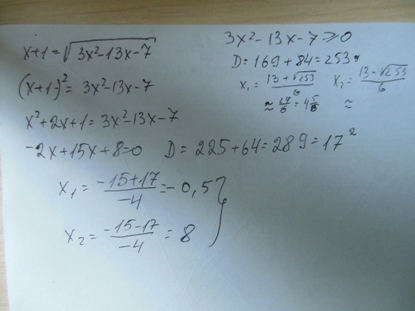 x+1=√3x²-13x-7
(x+1)²= 3x²-13x-7
x²+2x+1=3x²-13x-7
-2x+15x+8=0 D=225+64=289=17²
x₁= -15+17/-4 =-0,5
x₂= -15-17/-4 = 8
3x²-13x-7≥0
D=169+84=253
x₁= 13+√253/6 x₂= 13-√253/6